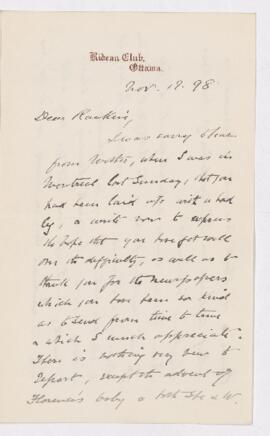 Rideau Club,
Ottawa.
Nov. 17. 98
Dear Rankin,
I was sorry to hear
from Wolfe, when I was in
Montreal last Sunday, that you
had been laid up with a bad
leg, & write now to express
the hope that you have got well
over the difficulty, as well as to
thank you for the newspapers
which you have been so kind
as to send from time to time
& which I much appreciate.
There is nothing very new to
report, except the advent of
Florence's baby & both she & W.